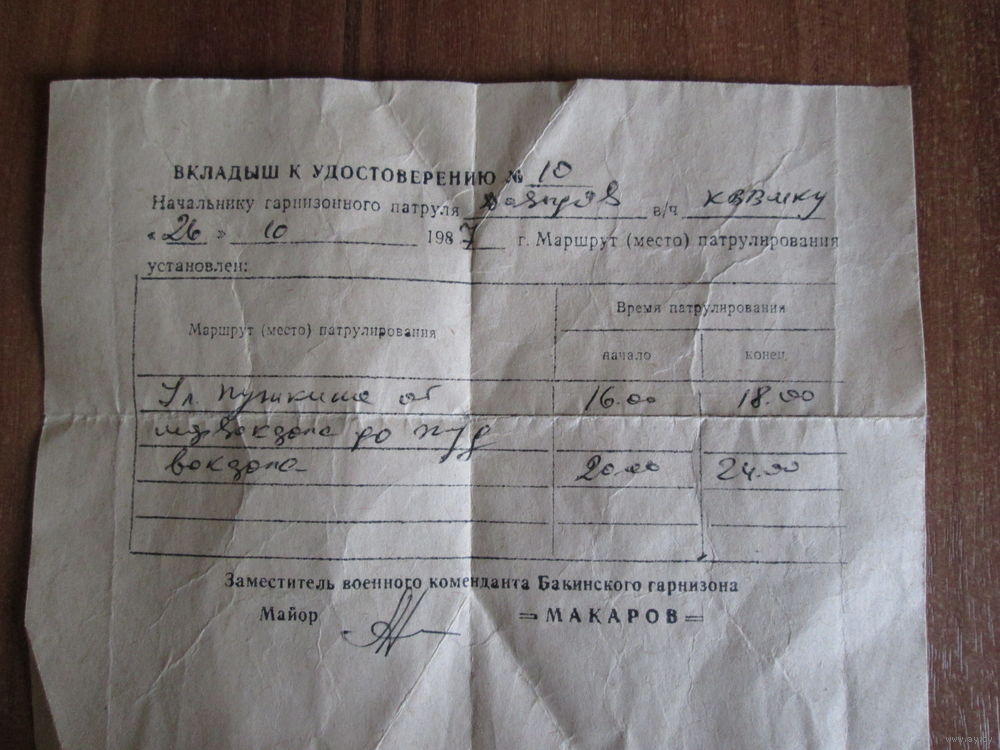 ВКЛАДЫШ К УДОСТОВЕРЕНИЮ № 10
Начальнику гарнизонного патруля в/ч КВВМКУ
«26» 10 1987 г. Маршрут (место) патрулирования
установлен:
Маршрут (место) патрулирования
Время патрулирования
начало конец
Ул. Пушкина от 16.00 18.00
до ж/д
вокзала 20.00 24.00
Заместитель военного коменданта Бакинского гарнизона
Майор =МАКАРОВ=
www.ay.by